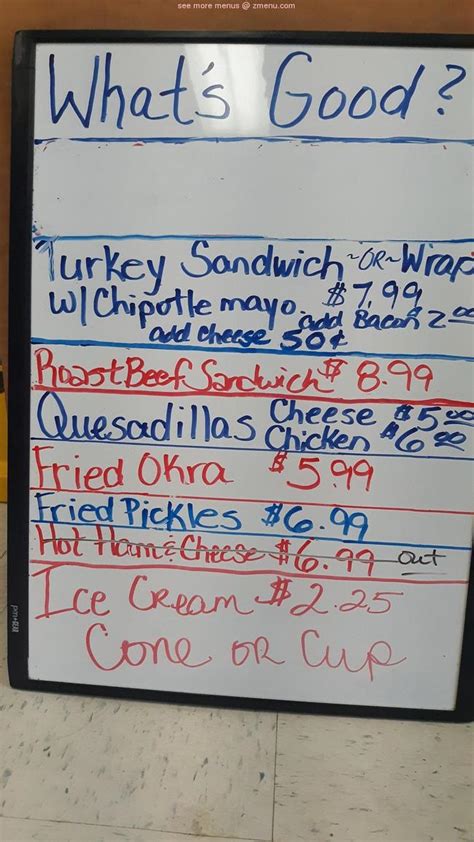 see more menus @ zmenu.com
What's Good?
Turkey Sandwich ~OR~ Wrap
w/ Chipotle mayo. $7.99
add Bacon 2.00
add cheese 50¢
Roast Beef Sandwich $8.99
Quesadillas Cheese $5.00
Chicken $6.00
Fried Okra $5.99
Fried Pickles $6.99
Hot Ham & Cheese $6.99 out
Ice Cream $2.25
Cone OR Cup